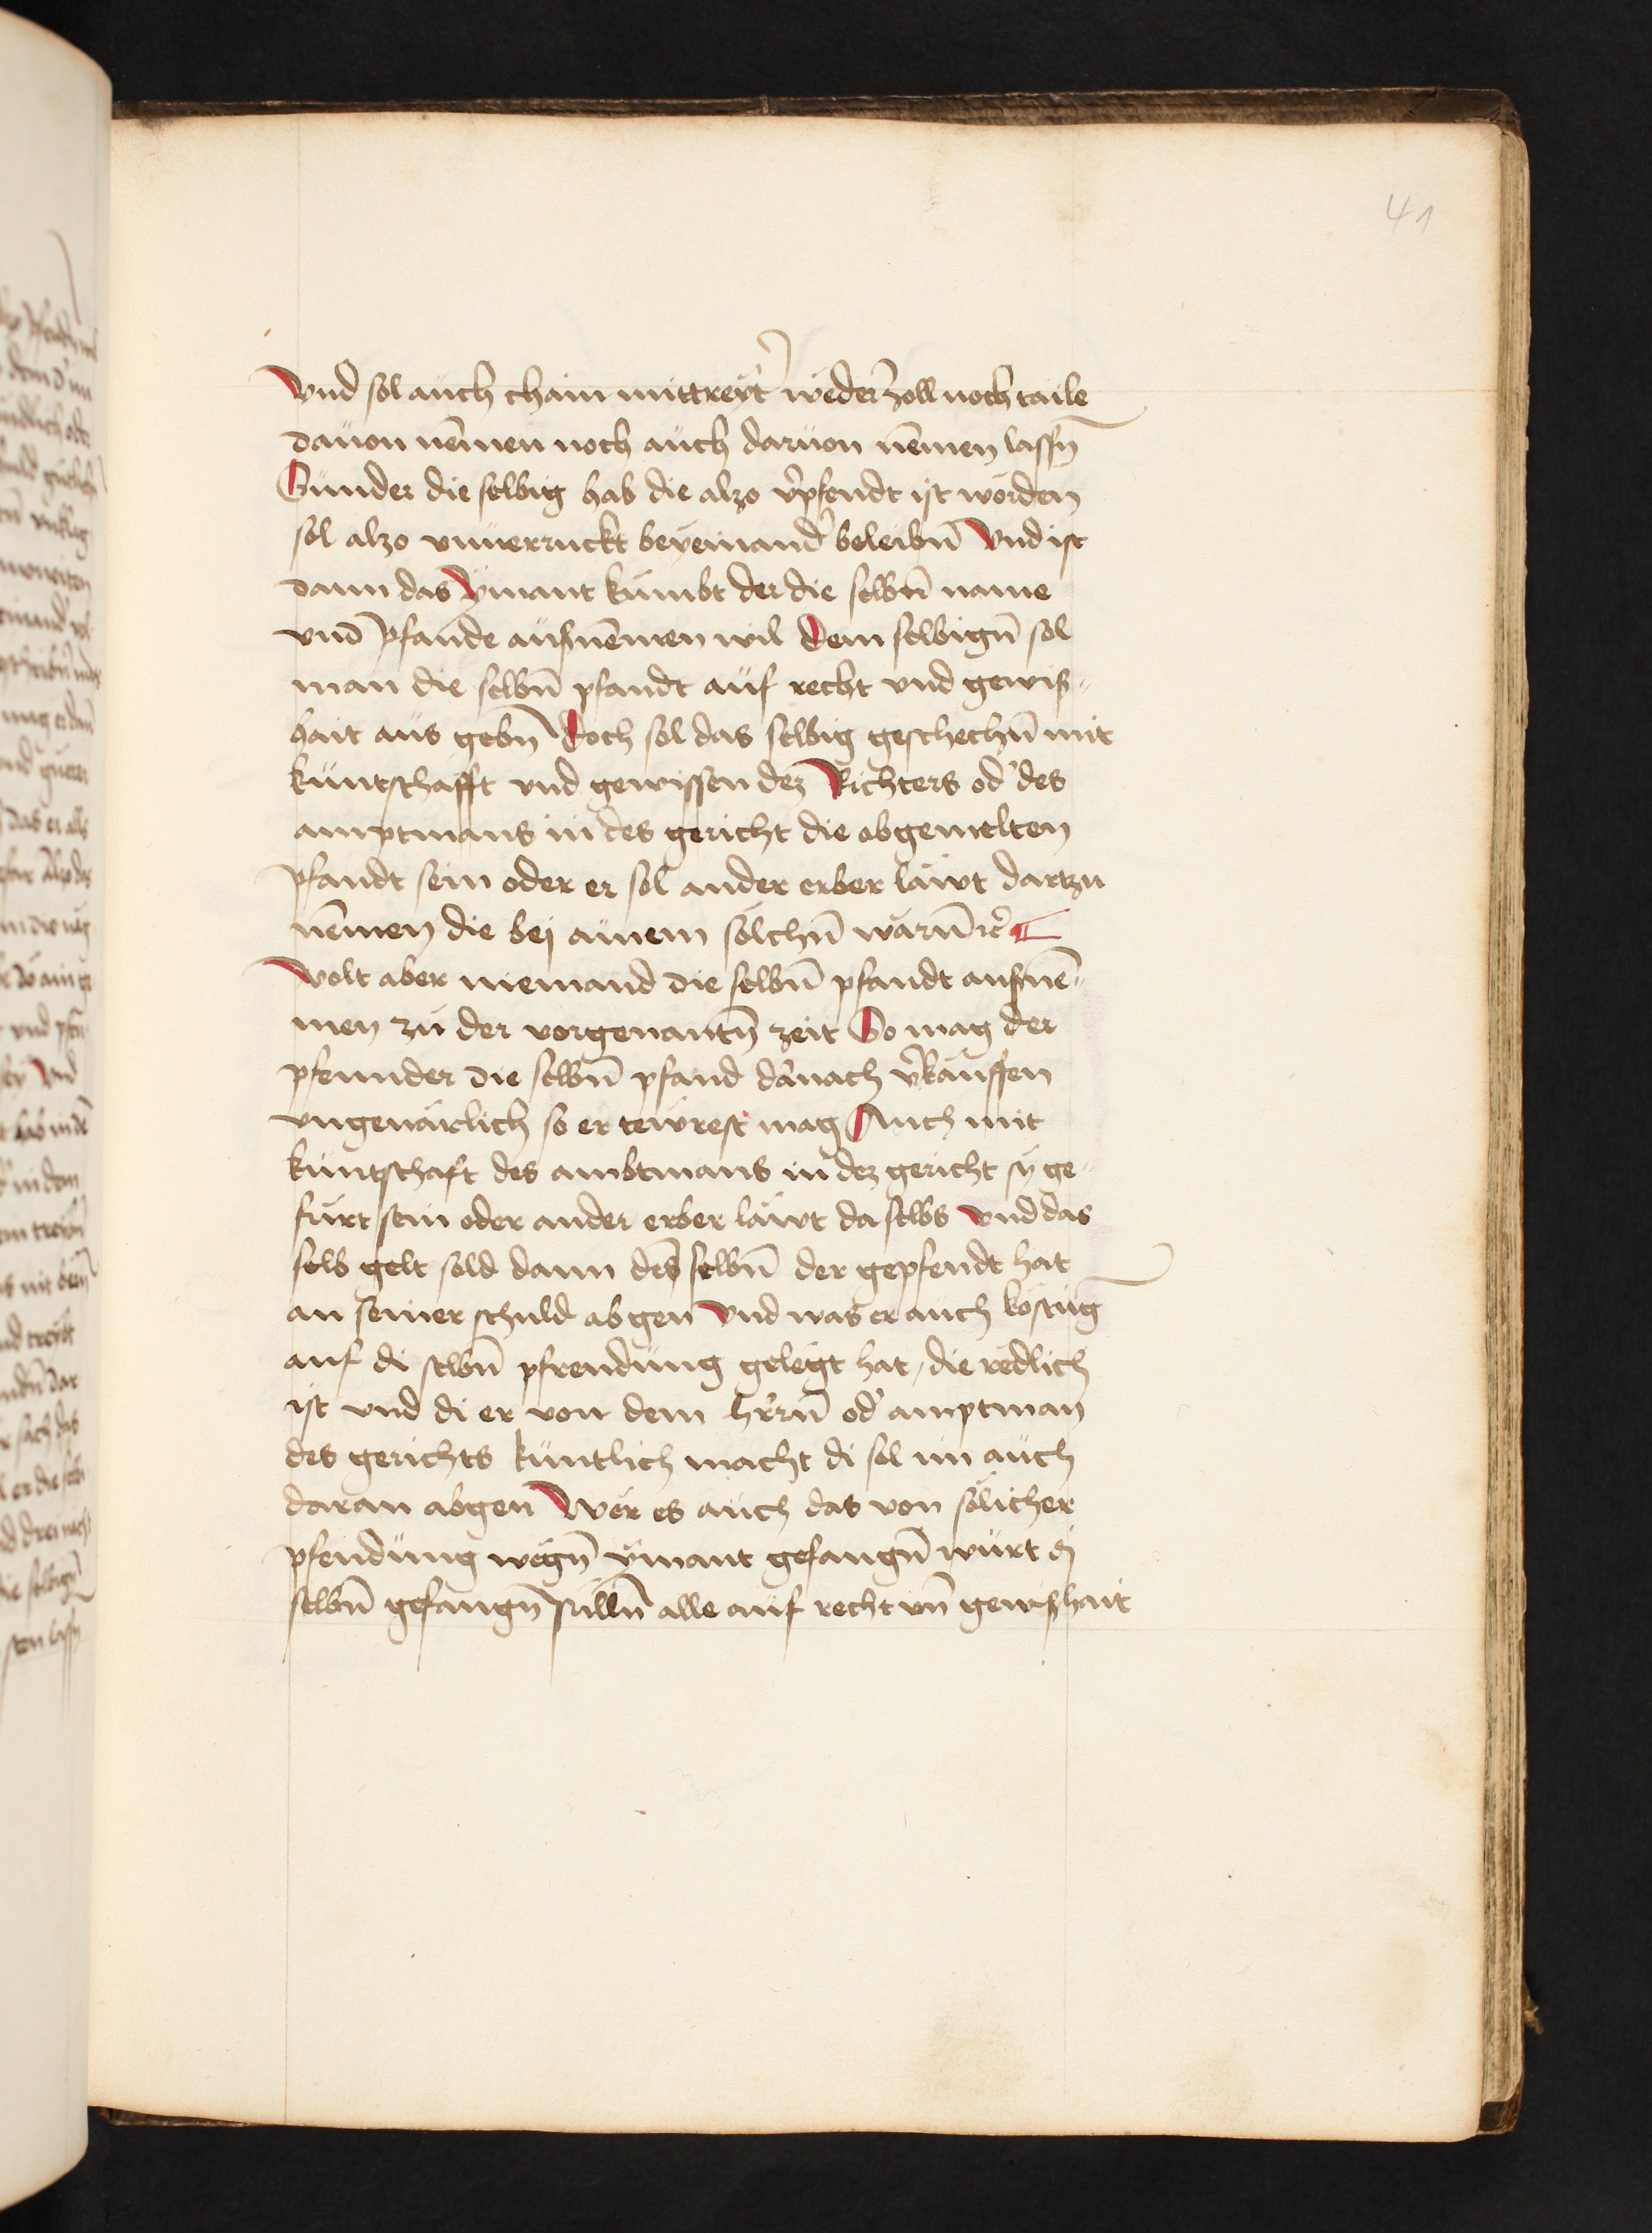 41
Vnd sol auch chain mittreyt̉ weder zoll noch taile
dauon nēmen noch auch daruon nēmen lassn̄
Sunder die selbig hab die alzo v̉pfendt ist worden
sol alzo vnuerruckt beyeinand̉ beleibn̄ Vnd ist
dann das ymant kumbt der die selbn̄ name
vnd̄ pfande aufnēmen wil dem selbign̄ sol
man die selbn̄ pfandt auf recht vnd gewis„
hait aus gebn̄ doch sol das selbig geschechn̄ mit
kuntschafft vnd gewissen dez Richters od̉ des
amptmans in des gericht die obgemelten
pfandt sein oder er sol ander erber läwt dartzu
nēmen die bej ainem solchn̄ warn̄ ꝛc̉
Wolt aber niemand die selbn̄ pfandt aufnē„
men zu der vorgenantn̄ zeit So mag der
pfennder die selbn̄ pfand d̉nach v̉kauffen
vngeuärlich so er tewrest mag Auch mit
kuntschaft des ambtmans in dez gericht sy ge„
furt sein oder ander erber läwt da selbs vnd das
selb gelt sold dann des selbn̄ der gepfendt hat
an seiner schuld abgen Vnd was er auch kostūg
auf di selbn̄ pfrendung gelegt hat / die redlich
ist vnd di er von dem hr̉rn̄ od̉ amptman
des gerichts kuntlich macht di sol im auch
daran abgen Wer es auch das von solicher
pfendung wegn̄ ymant gefangn̄ wurt di
selbn̄ gefangn̄ sulln̄ alle auf recht vn̄ gewishait